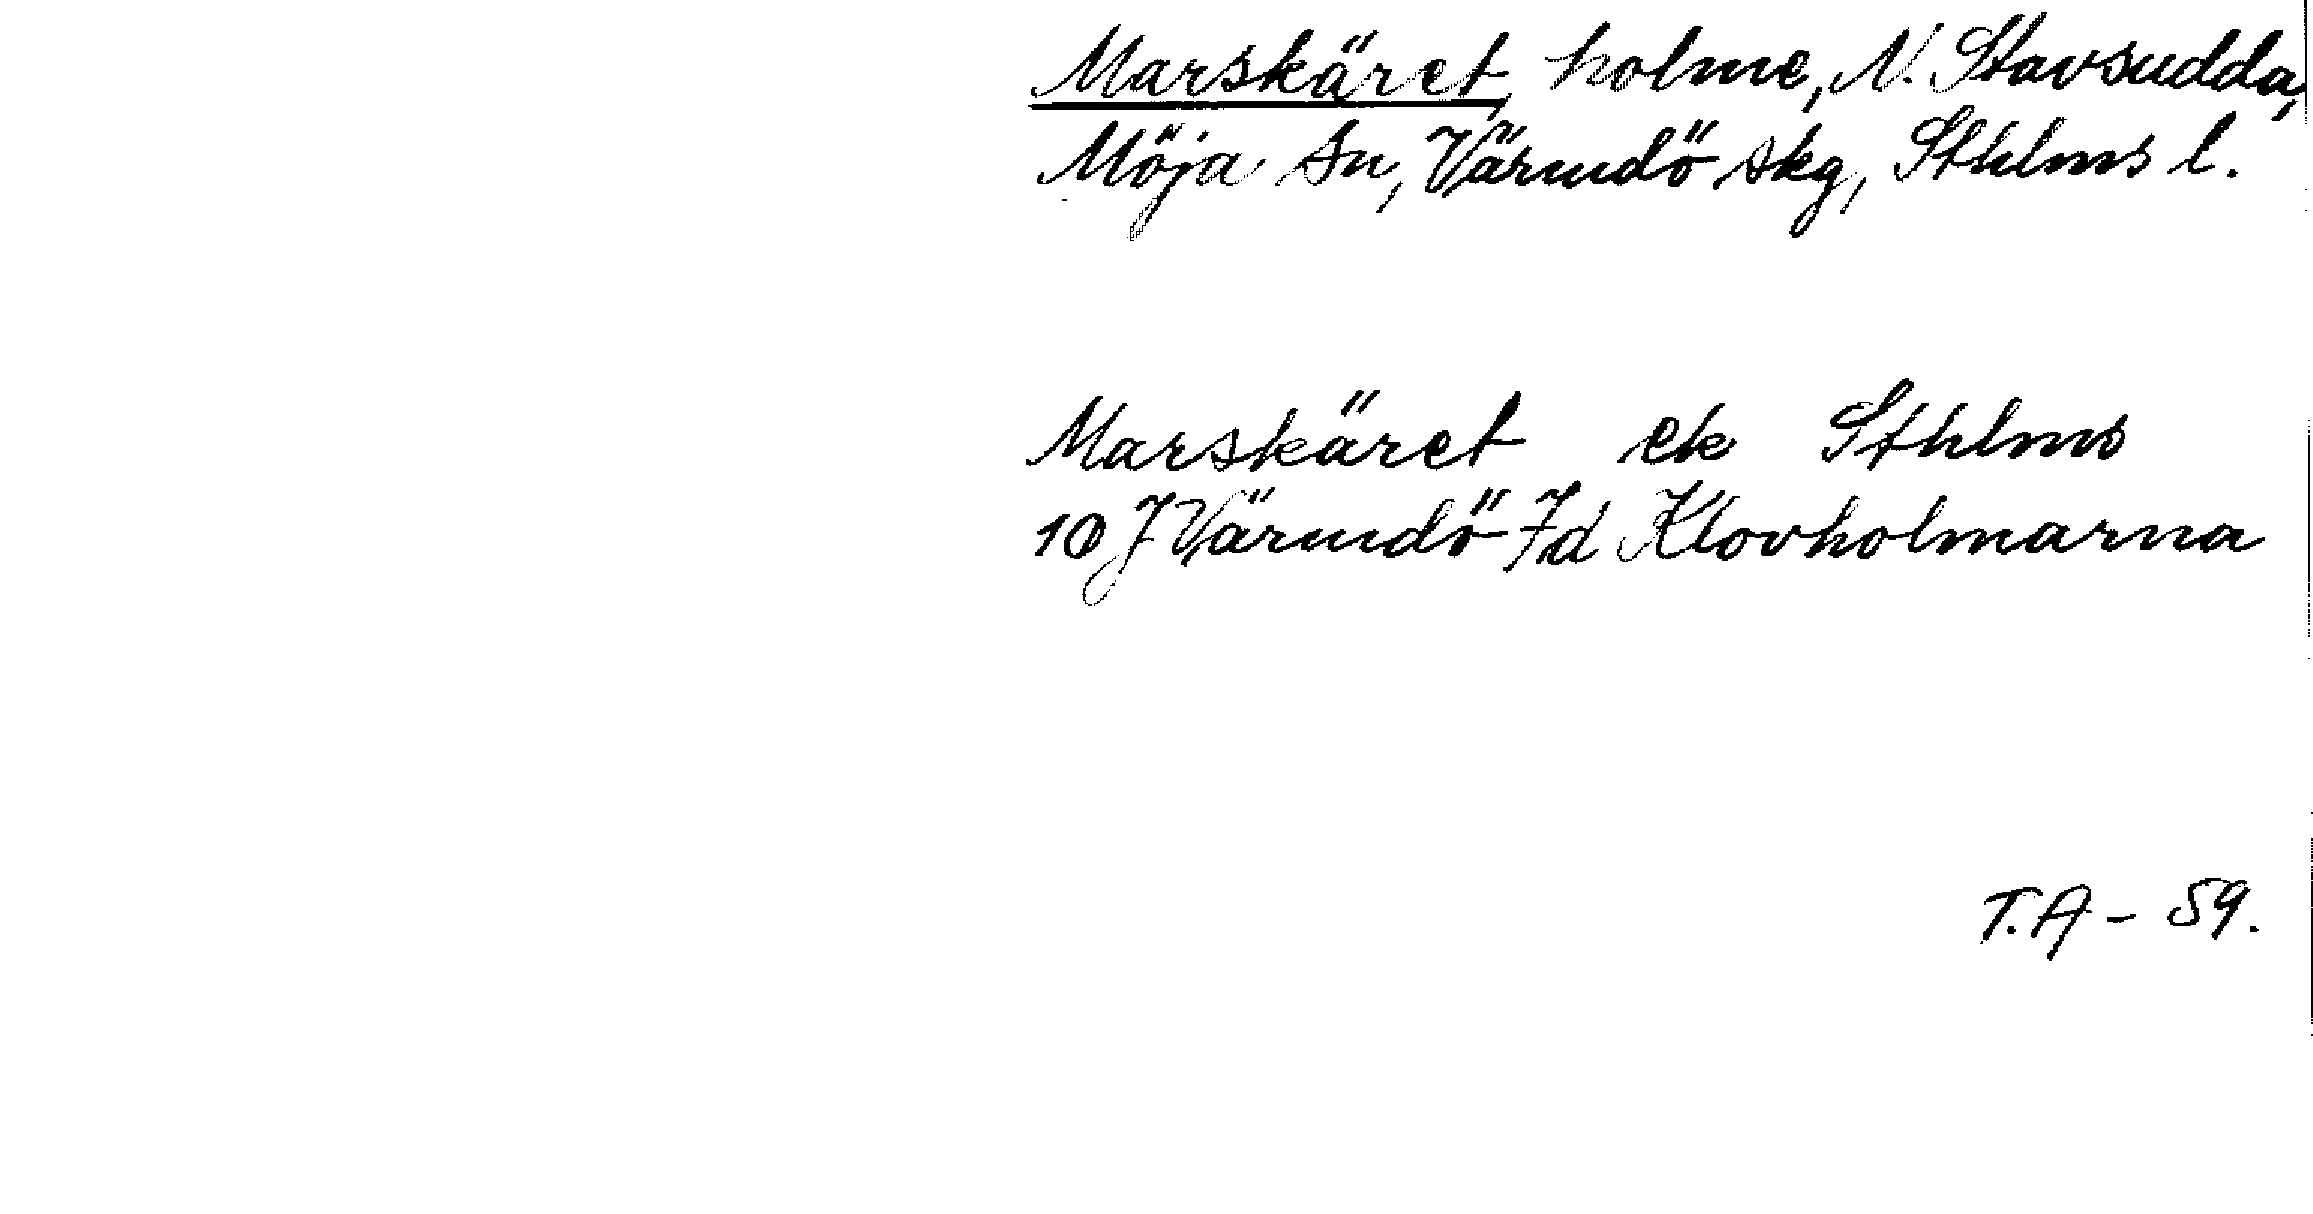 Marskäret, holme, N. Stavsudda,
Möja sn, Värmdö skg, Sthlms l.
Marskäret ek Sthlms
10 J Värmdö 7d Klovholmarna
T.A - 59.